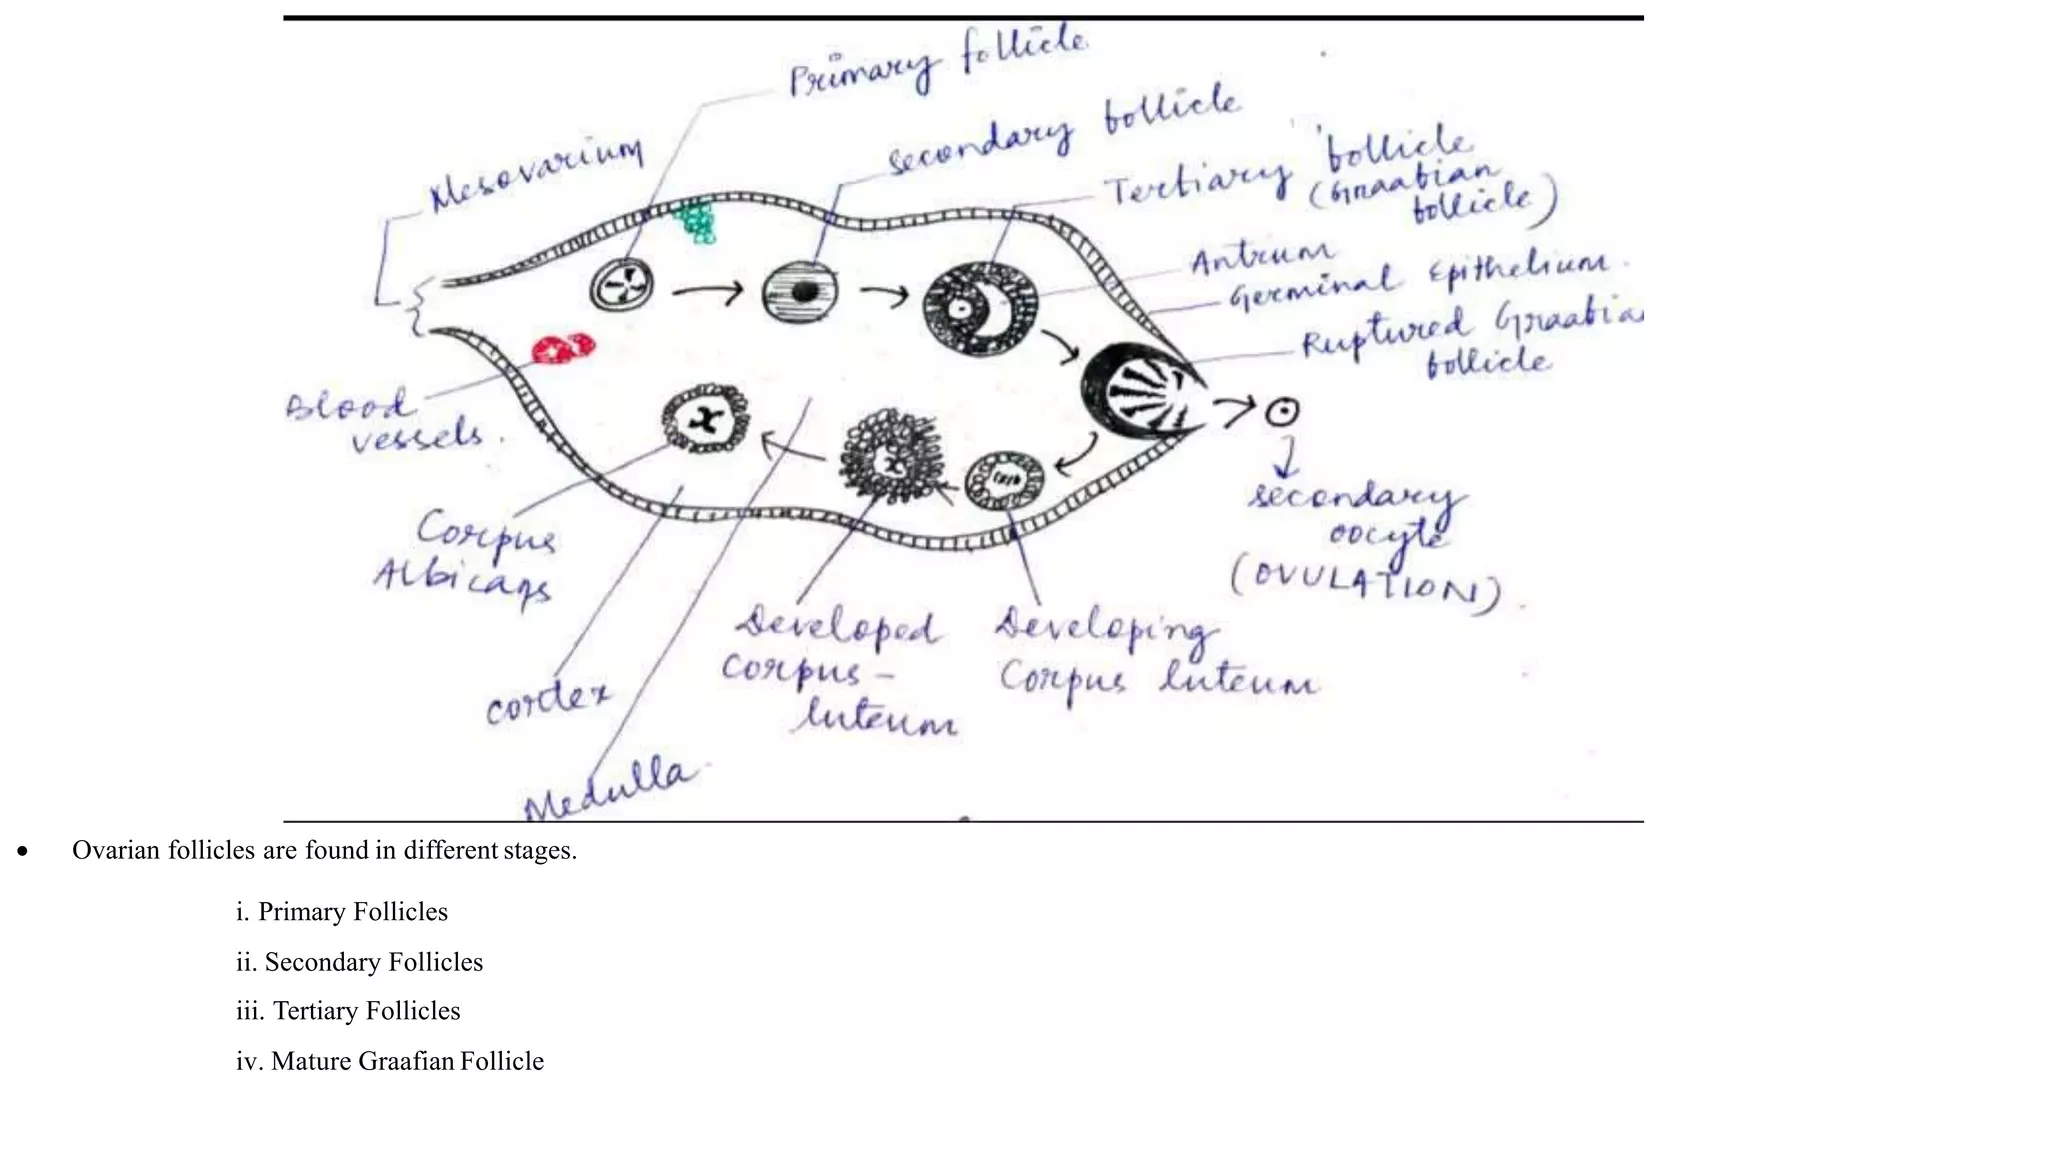 Primary follicle
Mesovarium
secondary follicle
Tertiary follicle
(Graafian
follicle)
Antrum
Germinal Epithelium.
Ruptured Graafia
follicle
Blood
vessels.
secondary
oocyte
(OVULATION).
Corpus
Albicans
Developed
Corpus-
luteum
Developing
Corpus luteum
cortex
Medulla
• Ovarian follicles are found in different stages.
i. Primary Follicles
ii. Secondary Follicles
iii. Tertiary Follicles
iv. Mature Graafian Follicle